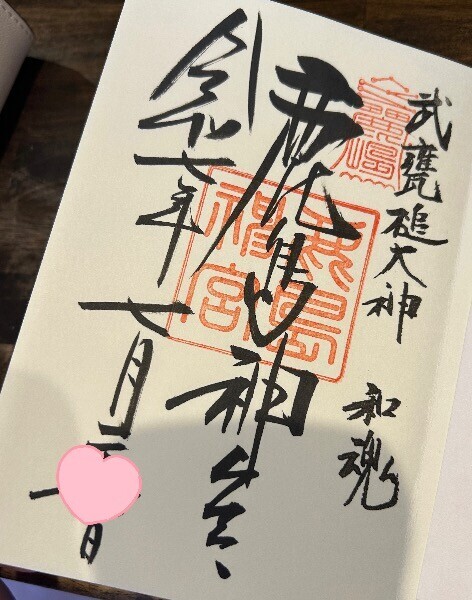 武甕槌大神
和魂
鹿島神宮
鹿島
神宮
令和七年
七月 日